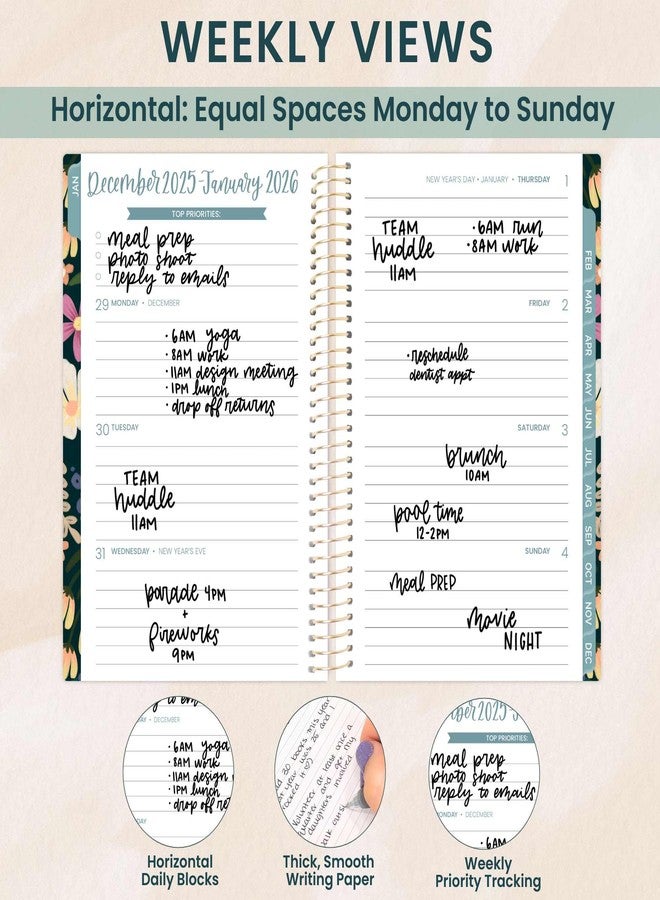 WEEKLY VIEWS
Horizontal: Equal Spaces Monday to Sunday
JAN
December 2025-January 2026
TOP PRIORITIES:
meal prep
photo shoot
reply to emails
29 MONDAY • DECEMBER
• 6AM yoga
• 8AM work
• 11AM design meeting
• 1PM lunch
• drop off returns
30 TUESDAY
TEAM
huddle
11AM
31 WEDNESDAY • NEW YEAR'S EVE
parade 4PM
+
fireworks
9PM
NEW YEAR'S DAY • JANUARY • THURSDAY 1
TEAM
huddle
11AM
• 6AM run
• 8AM work
FRIDAY 2
• reschedule
dentist appt
SATURDAY 3
brunch
10AM
pool time
12-2PM
SUNDAY 4
meal PREP
movie
NIGHT
FEB
MAR
APR
MAY
JUN
JUL
AUG
SEP
OCT
NOV
DEC
ly to em
DAY • DECEMBER
• 6AM yoga
• 8AM work
• 11AM design
• 1PM lunch
• drop off re
DAY
30 books this year
year was 25 and I
rocked it
Volunteer at least once a
quarter and the
daughters involved my
mber 2025-J
TOP PRIORITIES:
meal prep
photo shoot
reply to emails
MONDAY • DECEMBER
• 6AM
Horizontal
Daily Blocks
Thick, Smooth
Writing Paper
Weekly
Priority Tracking